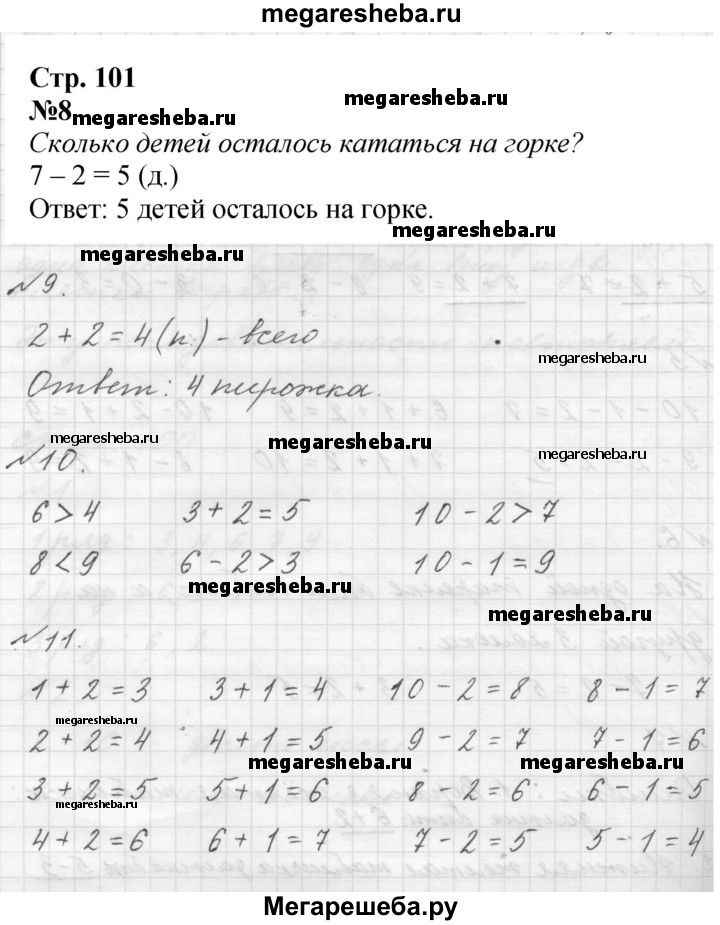 megaresheba.ru
Стр. 101
megaresheba.ru
№8 megaresheba.ru
Сколько детей осталось кататься на горке?
7 – 2 = 5 (д.)
Ответ: 5 детей осталось на горке.
megaresheba.ru
megaresheba.ru
№9.
2 + 2 = 4 (п.) - всего
megaresheba.ru
Ответ: 4 пирожка.
megaresheba.ru
megaresheba.ru
megaresheba.ru
№10.
6 > 4 3 + 2 = 5 10 - 2 > 7
8 < 9 6 - 2 > 3 10 - 1 = 9
megaresheba.ru
megaresheba.ru
№11.
1 + 2 = 3 3 + 1 = 4 10 - 2 = 8 8 - 1 = 7
megaresheba.ru
2 + 2 = 4 4 + 1 = 5 9 - 2 = 7 7 - 1 = 6
megaresheba.ru megaresheba.ru
3 + 2 = 5 5 + 1 = 6 8 - 2 = 6 6 - 1 = 5
megaresheba.ru
4 + 2 = 6 6 + 1 = 7 7 - 2 = 5 5 - 1 = 4
Мегарешеба.ру